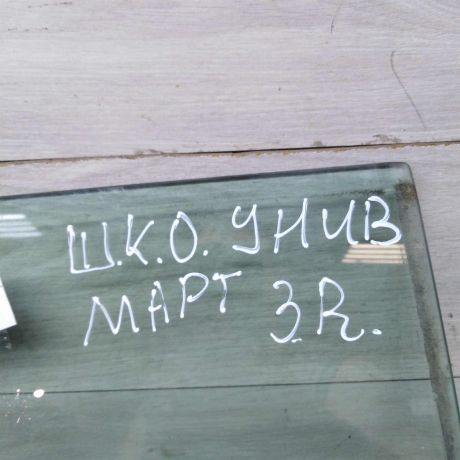 Ш.К.О. УНИВ
МАРТ 3R.